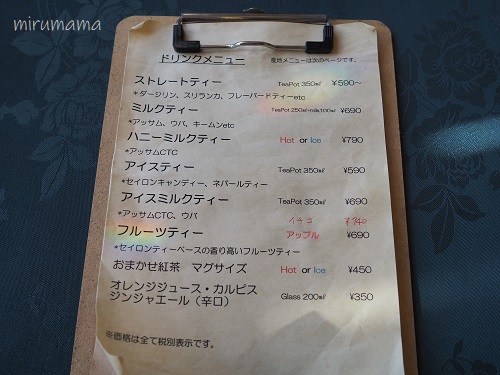 mirumama
ドリンクメニュー 産地メニューは次のページです。
ストレートティー TeaPot 350㎖ ￥590～
*ダージリン、スリランカ、フレーバードティーetc
ミルクティー TeaPot 250㎖+milk100㎖ ¥690
*アッサム、ウバ、キームンetc
ハニーミルクティー Hot or Ice ¥790
*アッサムCTC
アイスティー TeaPot 350㎖ ¥590
*セイロンキャンディー、ネパールティー
アイスミルクティー TeaPot 350㎖ ¥690
*アッサムCTC、ウバ イチゴ ¥740
フルーツティー アップル ¥690
*セイロンティーベースの香り高いフルーツティー
おまかせ紅茶 マグサイズ Hot or Ice ¥450
オレンジジュース・カルピス
ジンジャエール（辛口） Glass 200㎖ ¥350
※価格は全て税別表示です。